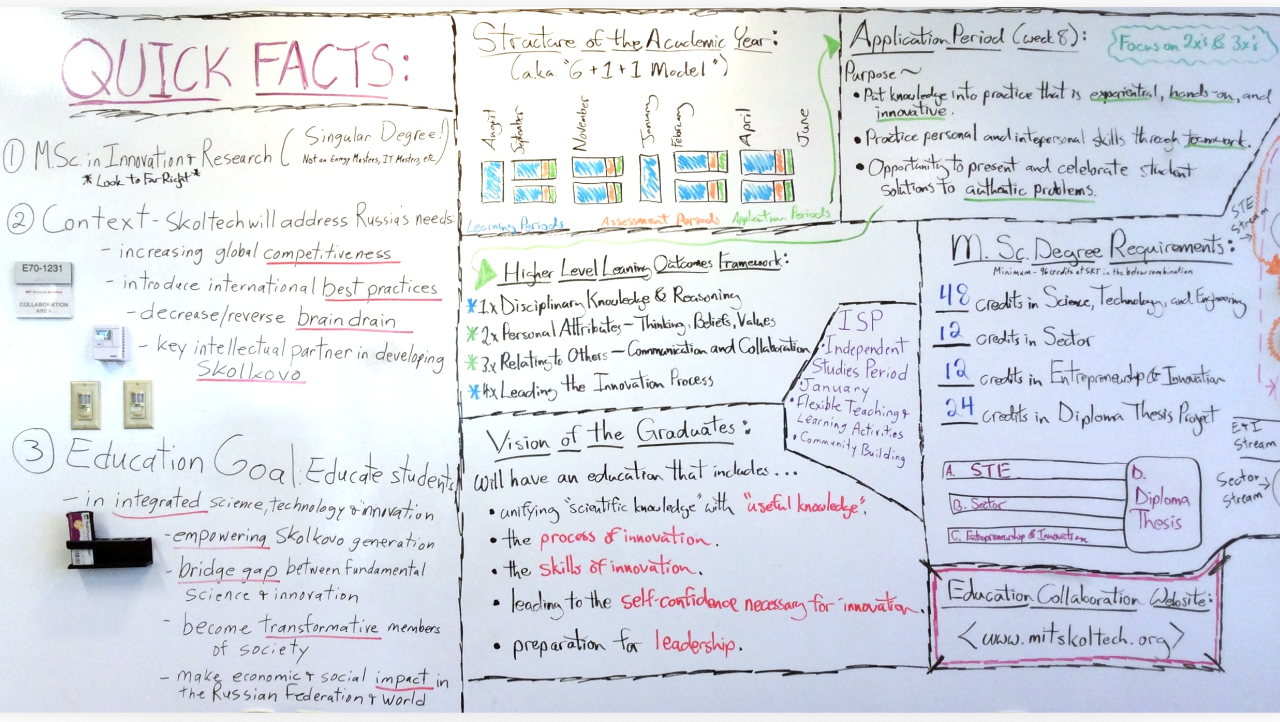 QUICK FACTS:
① M.Sc. in Innovation & Research (Singular Degree!
Not an Energy Masters, IT Masters, etc.)
*Look to Far Right*
② Context - Skoltech will address Russia's needs:
- increasing global competitiveness
- introduce international best practices
- decrease/reverse brain drain
- key intellectual partner in developing
Skolkovo
E70-1231
COLLABORATION
AREA
③ Education Goal: Educate students
- in integrated science, technology & innovation
- empowering Skolkovo generation
- bridge gap between fundamental
science & innovation
- become transformative members
of society
- make economic & social impact in
the Russian Federation & World
Structure of the Academic Year:
(a.k.a. "6+1+1 Model")
August
September
November
January
February
April
June
Learning Periods Assessment Periods Application Periods
Application Period (week 8):
Focus on 2x's & 3x's
Purpose ~
• Put knowledge into practice that is experiential, hands-on, and
innovative.
• Practice personal and intepersonal skills through teamwork.
• Opportunity to present and celebrate student
solutions to authentic problems.
Higher Level Learning Outcomes Framework:
*1x Disciplinary Knowledge & Reasoning
*2x Personal Attributes - Thinking, Beliefs, Values
*3x Relating to Others - Communication and Collaboration
*4x Leading the Innovation Process
ISP
• Independent
Studies Period
• January
• Flexible Teaching &
Learning Activities
• Community Building
Vision of the Graduates:
Will have an education that includes...
• unifying "scientific knowledge" with "useful knowledge".
• the process of innovation.
• the skills of innovation.
• leading to the self-confidence necessary for innovation.
• preparation for leadership.
M.Sc. Degree Requirements:
Minimum - 96 credits at SKT in the below combination
48 credits in Science, Technology, and Engineering
12 credits in Sector
12 credits in Entrepreneurship & Innovation
24 credits in Diploma Thesis Project
A. STE
B. Sector
C. Entrepreneurship & Innovation
D.
Diploma
Thesis
STE
Stream
E&I
Stream
Sector
Stream
Education Collaboration Website:
<www.mitskoltech.org>